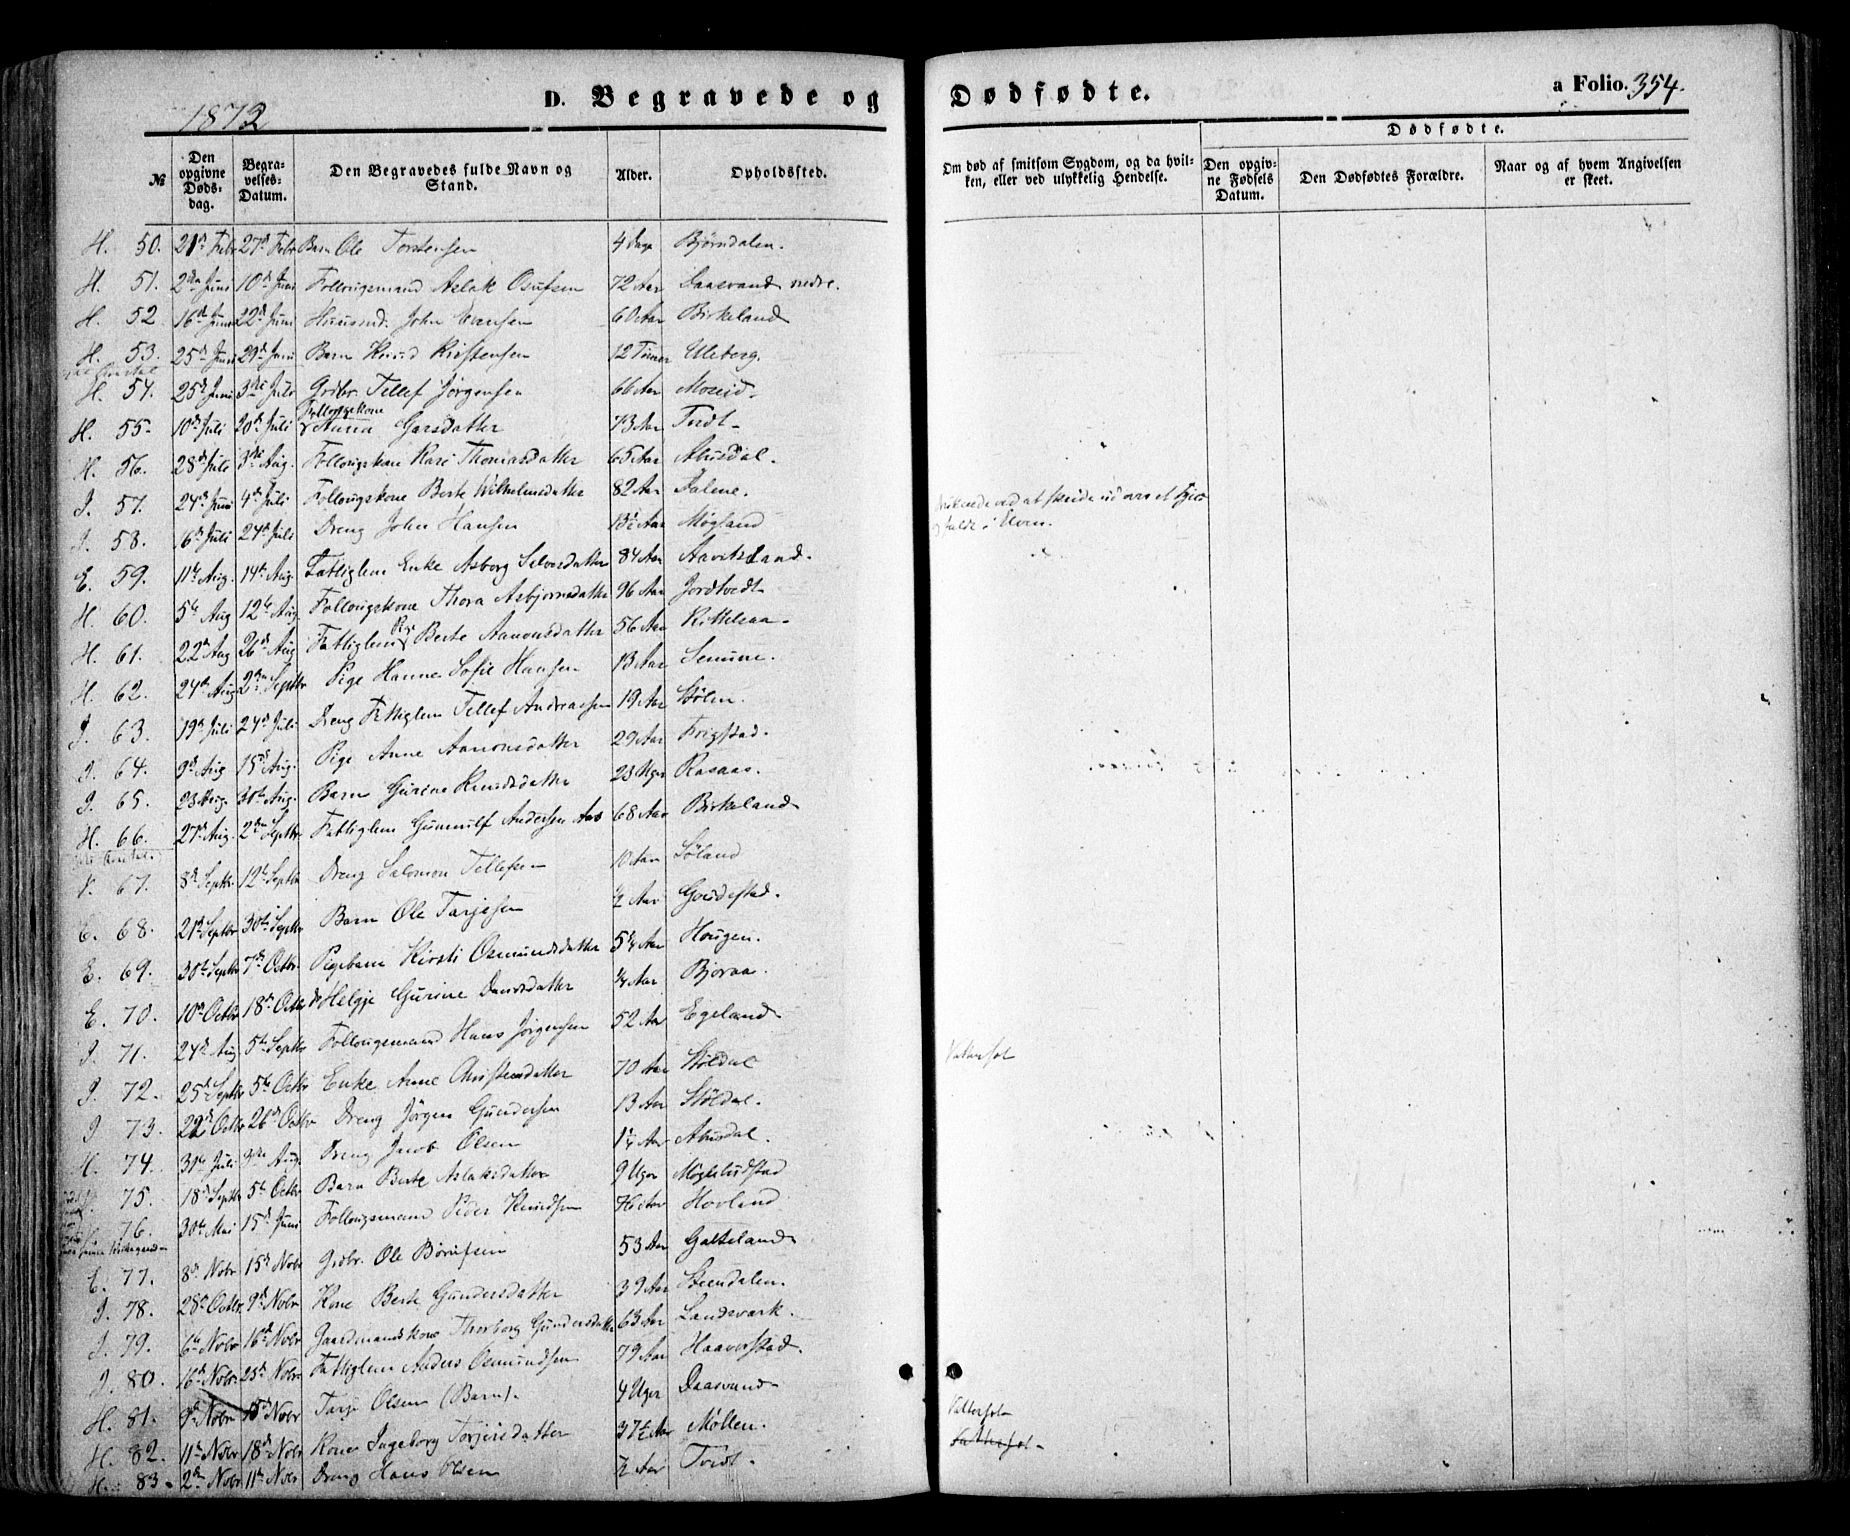 1872
D. Begravede og Dødfødte. a Folio. 354.
№ Den opgivne Dødsdag. Begravelses-Datum. Den Begravedes fulde Navn og Stand. Alder. Opholdssted. Om død af smitsom Sygdom, og da hvilken, eller ved ulykkelig Hendelse. Dødfødte. Den opgivne Fødsels Datum. Den Dødfødtes Forældre. Naar og af hvem Angivelsen er skeet.
H. 50. 21d Febr 27d Febr Barn Ole Torstensen 4 Dage Bjørndalen.
H. 51. 2den Juni 10d Juni Follougsmand Aslak Osufsen 72 Aar Daasvand nedre.
H. 52 16d Juni 22d Juni Huusmd. John Evensen 60 Aar Birkeland
H. 53. 25d Juni 29d Juni Barn Knud Kristensen 12 Timer Uleberg.
H. 54. 25d Juni 3die Juli Grdbr. Tellef Jørgensen 66 Aar Moseid.
H. 55. 10d Juli 20d Juli Follougskone Anna Garsdatter 73 Aar Tvedt
H. 56. 28d Juli 3die Aug. Follougskone Kari Thomasdatter 65 Aar Abusdal.
I. 57. 24d Juni 4d Juli Follougskone Berte Wilhelmsdatter 82 Aar Dalene.
I. 58. 16d Juli 24d Juli Dreng John Hansen 13½ Aar Møgland ved at skride ud over et i Elven.
E. 59. 11te Aug. 14d Aug. Fattiglem Enke Asborg Selvesdatter 84 Aar Aavitsland.
H. 60. 5te Aug 12te Aug Follougskone Thora Asbjørnsdatter 96 Aar Jordtvedt
H. 61. 22d Aug 26d Aug Fattiglem Pige Berte Aanonsdatter 56 Aar Kittelsaa
H. 62. 24d Aug 2den Septbr Pige Hanne Sofie Hansen 13 Aar Senum.
I. 63. 19d Juli 24d Juli Dreng Fattiglem Tellef Andreassen 19 Aar Stølen.
I. 64. 9d Aug 15d Aug. Pige Anne Aanonsdatter 29 Aar Frigstad.
I. 65. 23 Aug. 30te Aug. Barn Gurine Knudsdatter 23 Uger Rosaas.
H. 66. 27d Aug. 2den Septbr Fattiglem Gunnulf Andersen Aas 68 Aar Birkeland
67. 8d Septbr. 12te Septbr Dreng Salomon Tellefsen 10 Aar Løland
E. 68. 21d Septbr 30te Septbr Barn Ole Tarjesen ½ Aar Goudestad.
E. 69. 30te Septbr 7d Octbr. Pigebarn Kirsti Osmundsdatter 5¾ Aar Hougen.
E. 70. 10d Octbr 18d Octbr do Helgje Gurine Danielsdatter ¼ Aar Bjoraa.
I. 71. 24d Aug. 5te Septbr Follougsmand Hans Jørgensen 52 Aar Egeland.
I. 72. 25d Septbr 5te Octbr Enke Anne Christensdatter 70 Aar Støldal Vattersot
I. 73. 22d Octbr 26d Octbr Dreng Jørgen Gundersen 13 Aar Støldal.
H. 74. 31te Juli 3die Aug. Dreng Jacob Olsen 1¼ Aar Abusdal.
75. 18d Septbr 5te Octbr Barn Berte Aslaksdatter 9 Uger Møglebudstad
76. 30te Mai 15d Juni Follougsmand Peder Knudsen 76½ Aar Hovland
E. 77. 8d Nobr 15d Nobr Grdbr. Ole Børufsen 53 Aar Gatteland
I. 78. 28d Octbr. 9d Nobr Kone Berte Gundersdatter 39 Aar Steendalen.
I. 79. 6te Nobr 16d Nobr Gaardmandskone Thorborg Gundersdatter 63 Aar Landsvark.
I. 80. 16d Nobr. 25d Nobr. Fattiglem Anders Osmundsen 79 Aar Haaverstad.
H. 81. 9d Nobr 18d Nobr Tarje Olsen (Barn). 4 Uger Daasvand
H. 82. 11te Nobr 18d Nobr Kone Ingeborg Torjusdatter 37½ Aar Møllen. Vattersot
H. 83. 2den Nobr 11te Nobr Dreng Hans Olsen ½ Aar Tvedt.